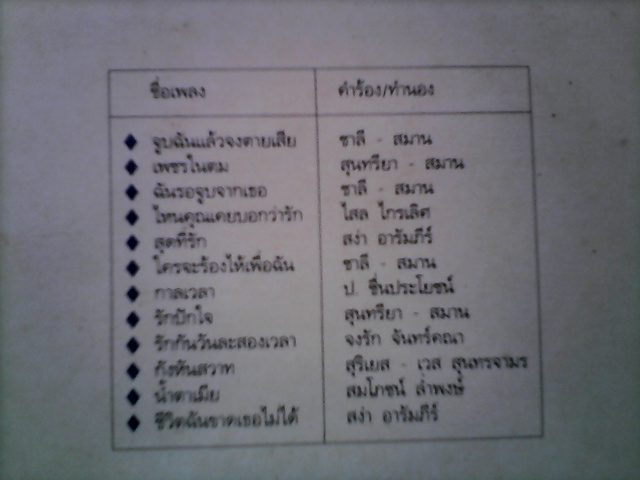 ชื่อเพลง คำร้อง/ทำนอง
◆ จูบฉันแล้วจงตายเสีย ชาลี - สมาน
◆ เพชรในตม สุนทรียา - สมาน
◆ ฉันรอจูบจากเธอ ชาลี - สมาน
◆ ไหนคุณเคยบอกว่ารัก ไสล ไกรเลิศ
◆ สุดที่รัก สง่า อารัมภีร์
◆ ใครจะร้องไห้เพื่อฉัน ชาลี - สมาน
◆ กาลเวลา ป. ชื่นประโยชน์
◆ รักปักใจ สุนทรียา - สมาน
◆ รักกันวันละสองเวลา จงรัก จันทร์คณา
◆ กังหันสวาท สุริเยส - เวส สุนทรจามร
◆ น้ำตาเมีย สมโภชน์ ล้ำพงษ์
◆ ชีวิตฉันขาดเธอไม่ได้ สง่า อารัมภีร์